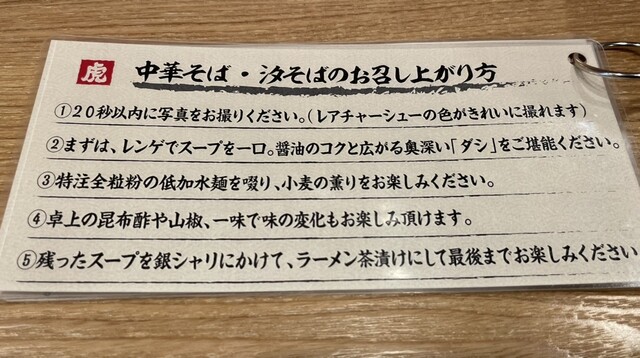 虎
中華そば・汐そばのお召し上がり方
①20秒以内に写真をお撮りください。(レアチャーシューの色がきれいに撮れます)
②まずは、レンゲでスープを一口。醤油のコクと広がる奥深い「ダシ」をご堪能ください。
③特注全粒粉の低加水麺を啜り、小麦の薫りをお楽しみください。
④卓上の昆布酢や山椒、一味で味の変化もお楽しみ頂けます。
⑤残ったスープを銀シャリにかけて、ラーメン茶漬けにして最後までお楽しみください